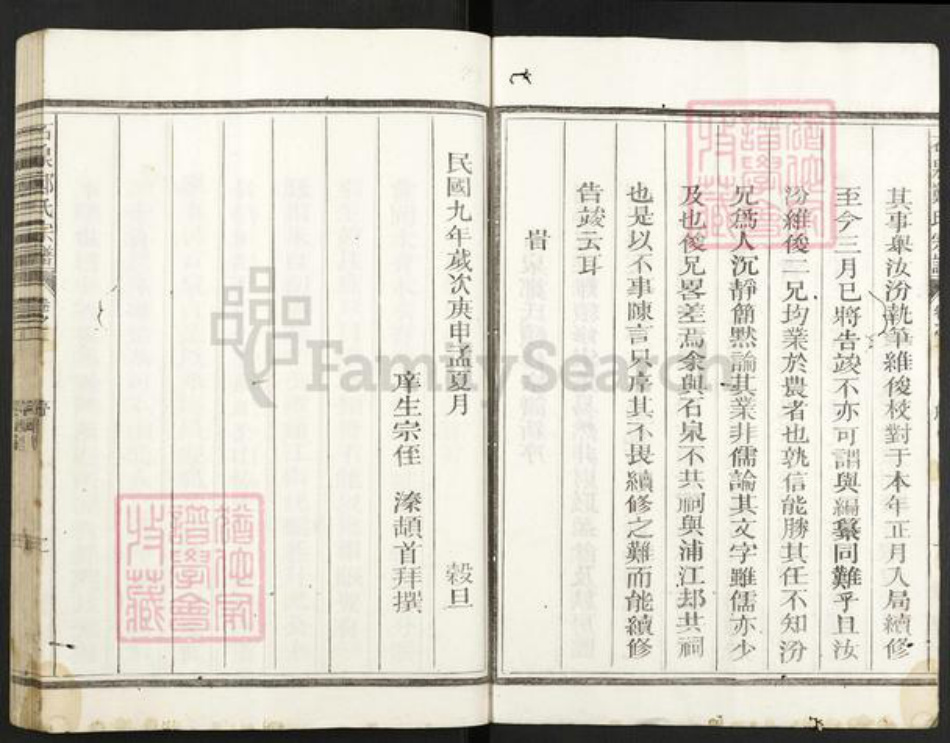 其事舉汝汾執筆維俊校對于本年正月入局續修
至今三月已將告竣不亦可謂與編纂同難乎且汝
汾維俊二兄均業於農者也孰信能勝其任不知汾
兄爲人沉靜簡默論其業非儒論其文字雖儒亦少
及也俊兄畧差焉余與石泉不共祠與浦江却共祠
也是以不事陳言只序其不畏續修之難而能續修
告竣云耳
旹
民國九年歲次庚申孟夏月 穀旦
庠生宗侄 溱頡首拜撰
石泉鄭氏宗譜
FamilySearch